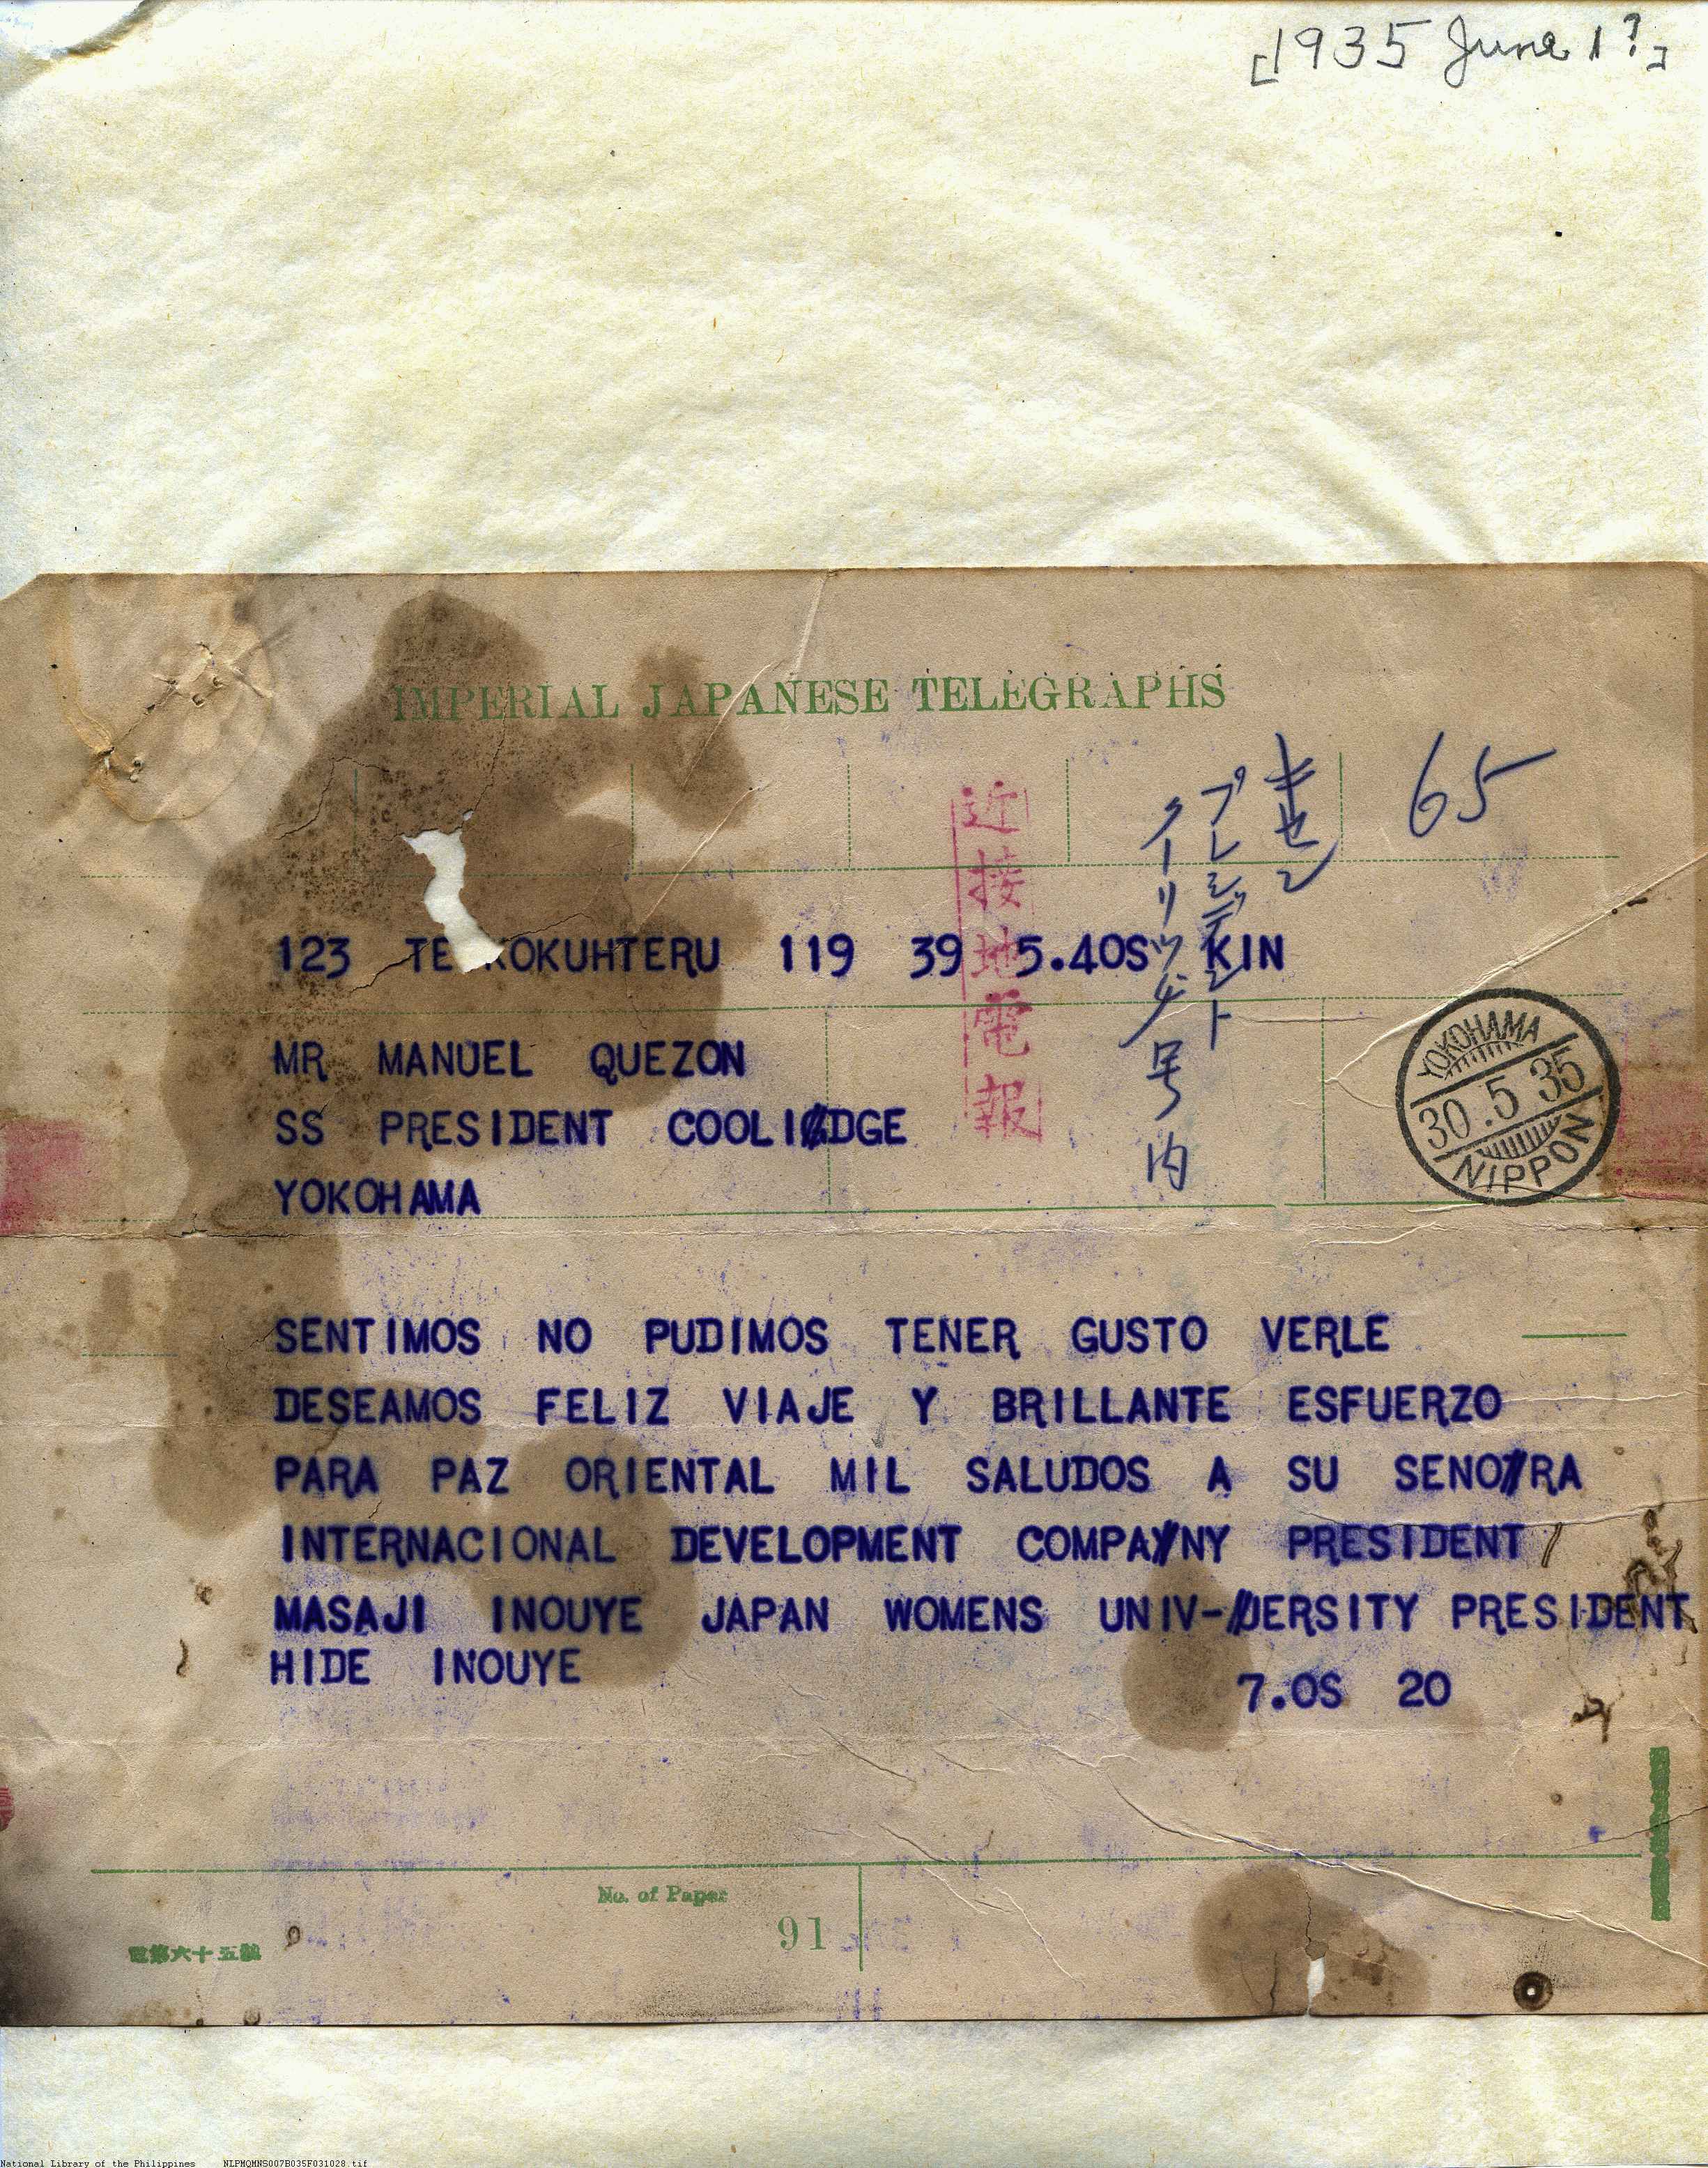 [1935 June 1?]
IMPERIAL JAPANESE TELEGRAPHS
65
キセン
プレシデント
クーリッヂ号内
近接地電報
123 TE KOKUHTERU 119 39 5.40S KIN
MR MANUEL QUEZON
SS PRESIDENT COOLIDGE
YOKOHAMA
YOKOHAMA
30.5 35
NIPPON
SENTIMOS NO PUDIMOS TENER GUSTO VERLE
DESEAMOS FELIZ VIAJE Y BRILLANTE ESFUERZO
PARA PAZ ORIENTAL MIL SALUDOS A SU SENORA
INTERNACIONAL DEVELOPMENT COMPANY PRESIDENT
MASAJI INOUYE JAPAN WOMENS UNIV-ERSITY PRESIDENT
HIDE INOUYE
7.0S 20
No. of Paper
91
電第六十五號
National Library of the Philippines NLPMQMNS007B035F031028.tif